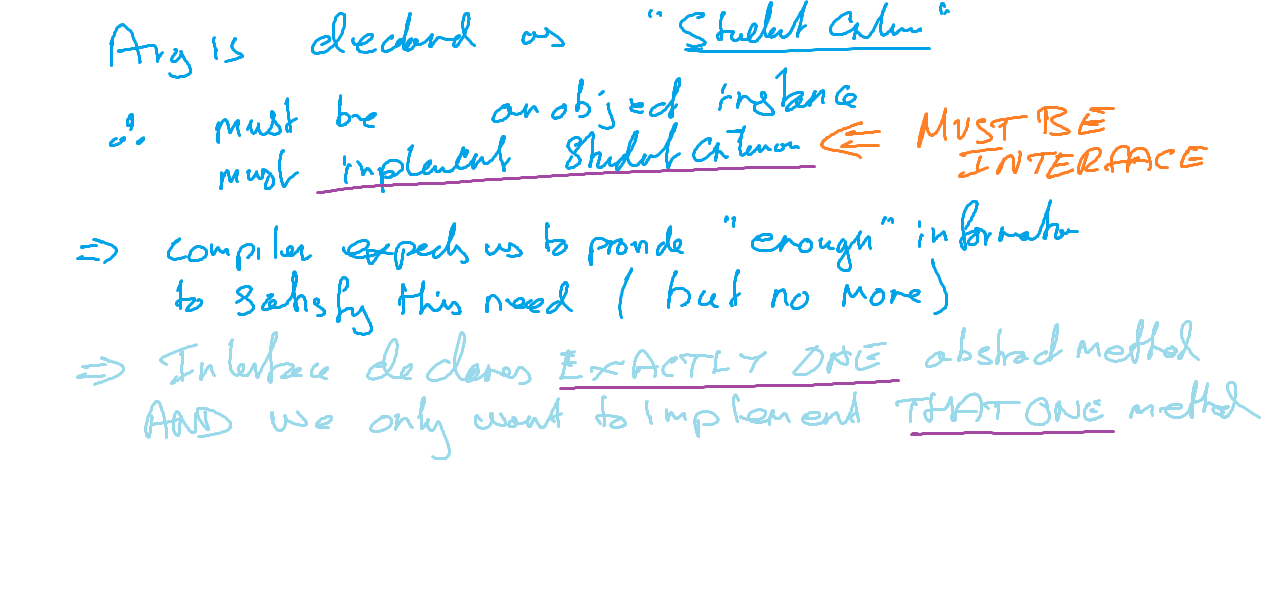 Arg is declared as "Student Criterion"
∴ must be an object instance
must implement StudentCriterion ⇐ MUST BE INTERFACE
⇒ compiler expects us to provide "enough" information
to satisfy this need (but no more)
⇒ Interface declares EXACTLY ONE abstract method
AND we only want to implement THAT ONE method